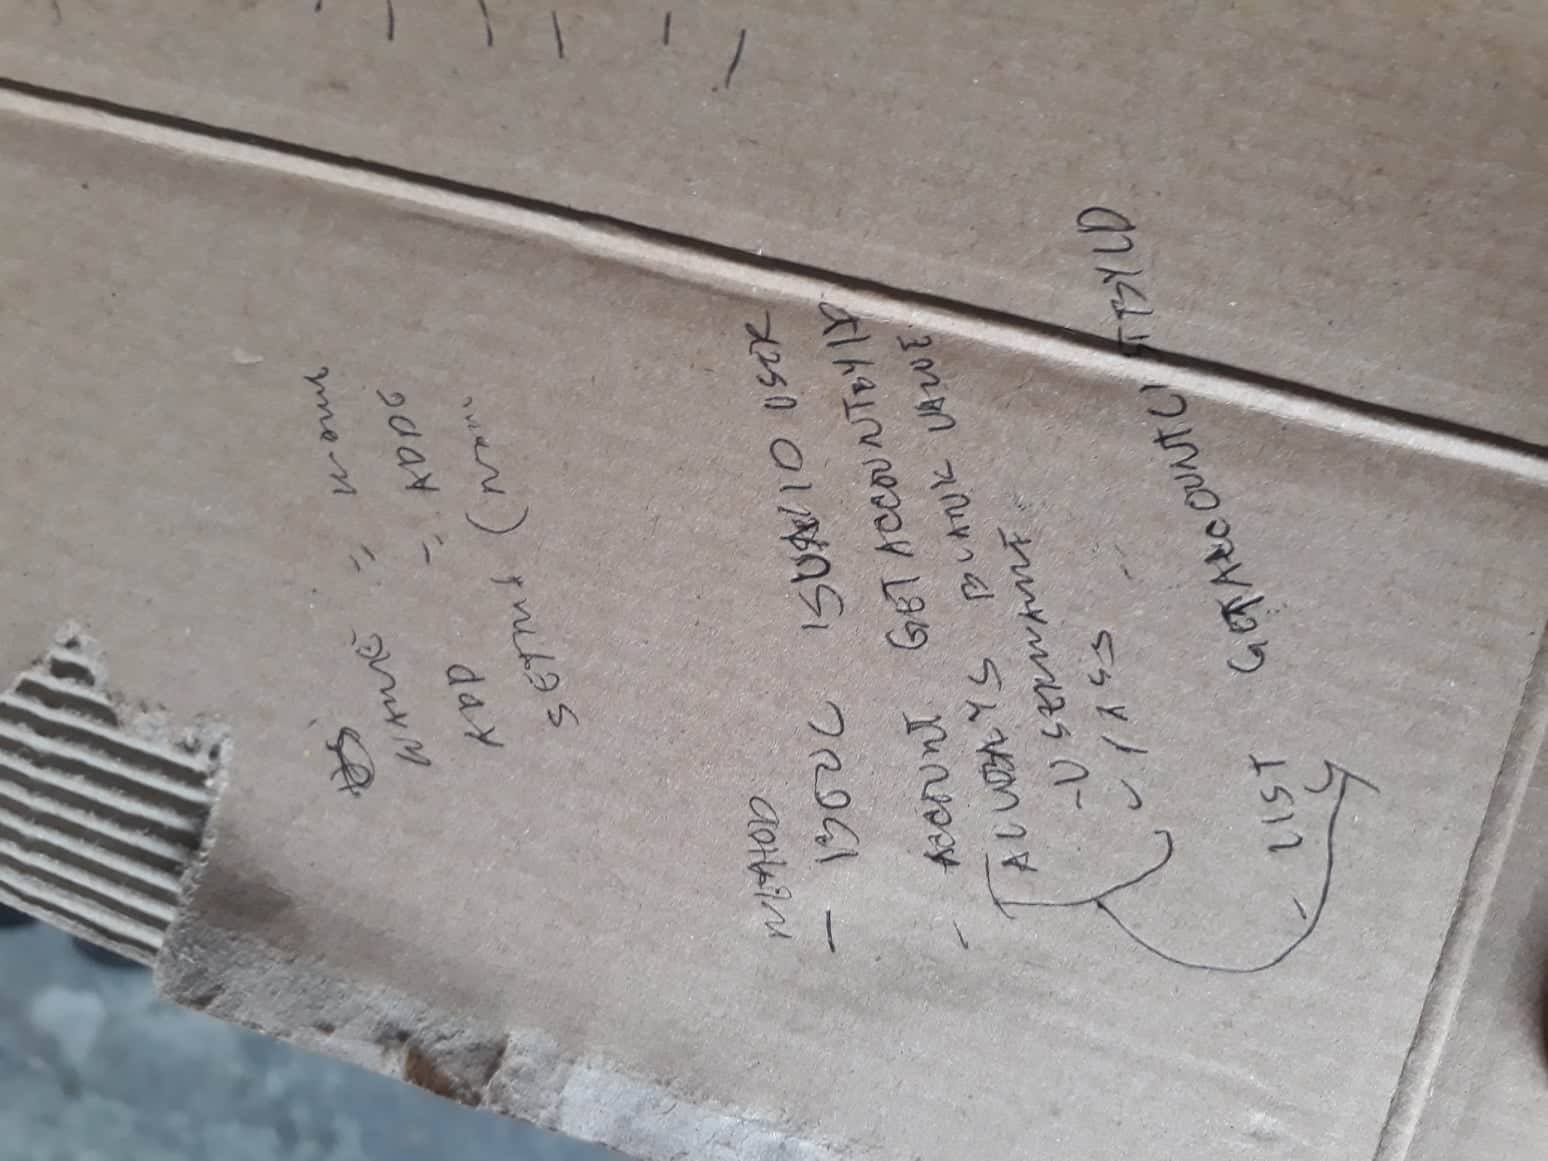 NAME = name
ADD = ADDE
SETNA (nam
METHOD
- BOOL ISVALID USER
- ACCOUNT GETACCOUNTBYID
ALWAYS BLANK VALUE
- USERNAME
- PASS
- LIST GETACCOUNTLISTBYID